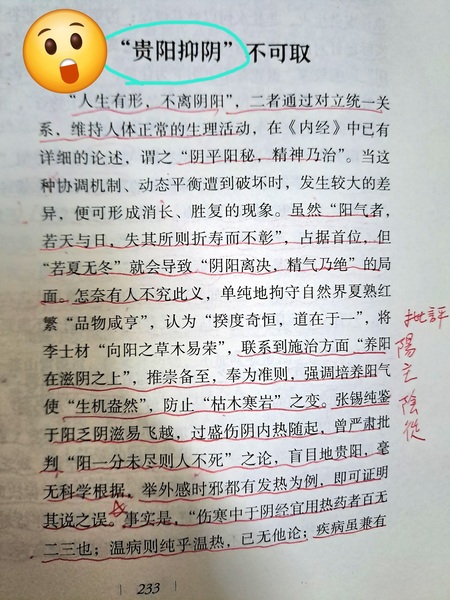 “贵阳抑阴”不可取
“人生有形，不离阴阳”，二者通过对立统一关
系，维持人体正常的生理活动，在《内经》中已有
详细的论述，谓之“阴平阳秘，精神乃治”。当这
种协调机制、动态平衡遭到破坏时，发生较大的差
异，便可形成消长、胜复的现象。虽然“阳气者，
若天与日，失其所则折寿而不彰”，占据首位，但
“若夏无冬”就会导致“阴阳离决，精气乃绝”的局
面。怎奈有人不究此义，单纯地拘守自然界夏熟红
繁“品物咸亨”，认为“揆度奇恒，道在于一”，将
李士材“向阳之草木易荣”，联系到施治方面“养阳
在滋阴之上”，推崇备至，奉为准则，强调培养阳气
使“生机盎然”，防止“枯木寒岩”之变。张锡纯鉴
于阳乏阴滋易飞越，过盛伤阴内热随起，曾严肃批
判“阳一分未尽则人不死”之论，盲目地贵阳，毫
无科学根据。举外感时邪都有发热为例，即可证明
其说之误。事实是，“伤寒中于阴经宜用热药者百无
二三也；温病则纯乎温热，已无他论；疾病虽兼有
233
批評
陽主陰從